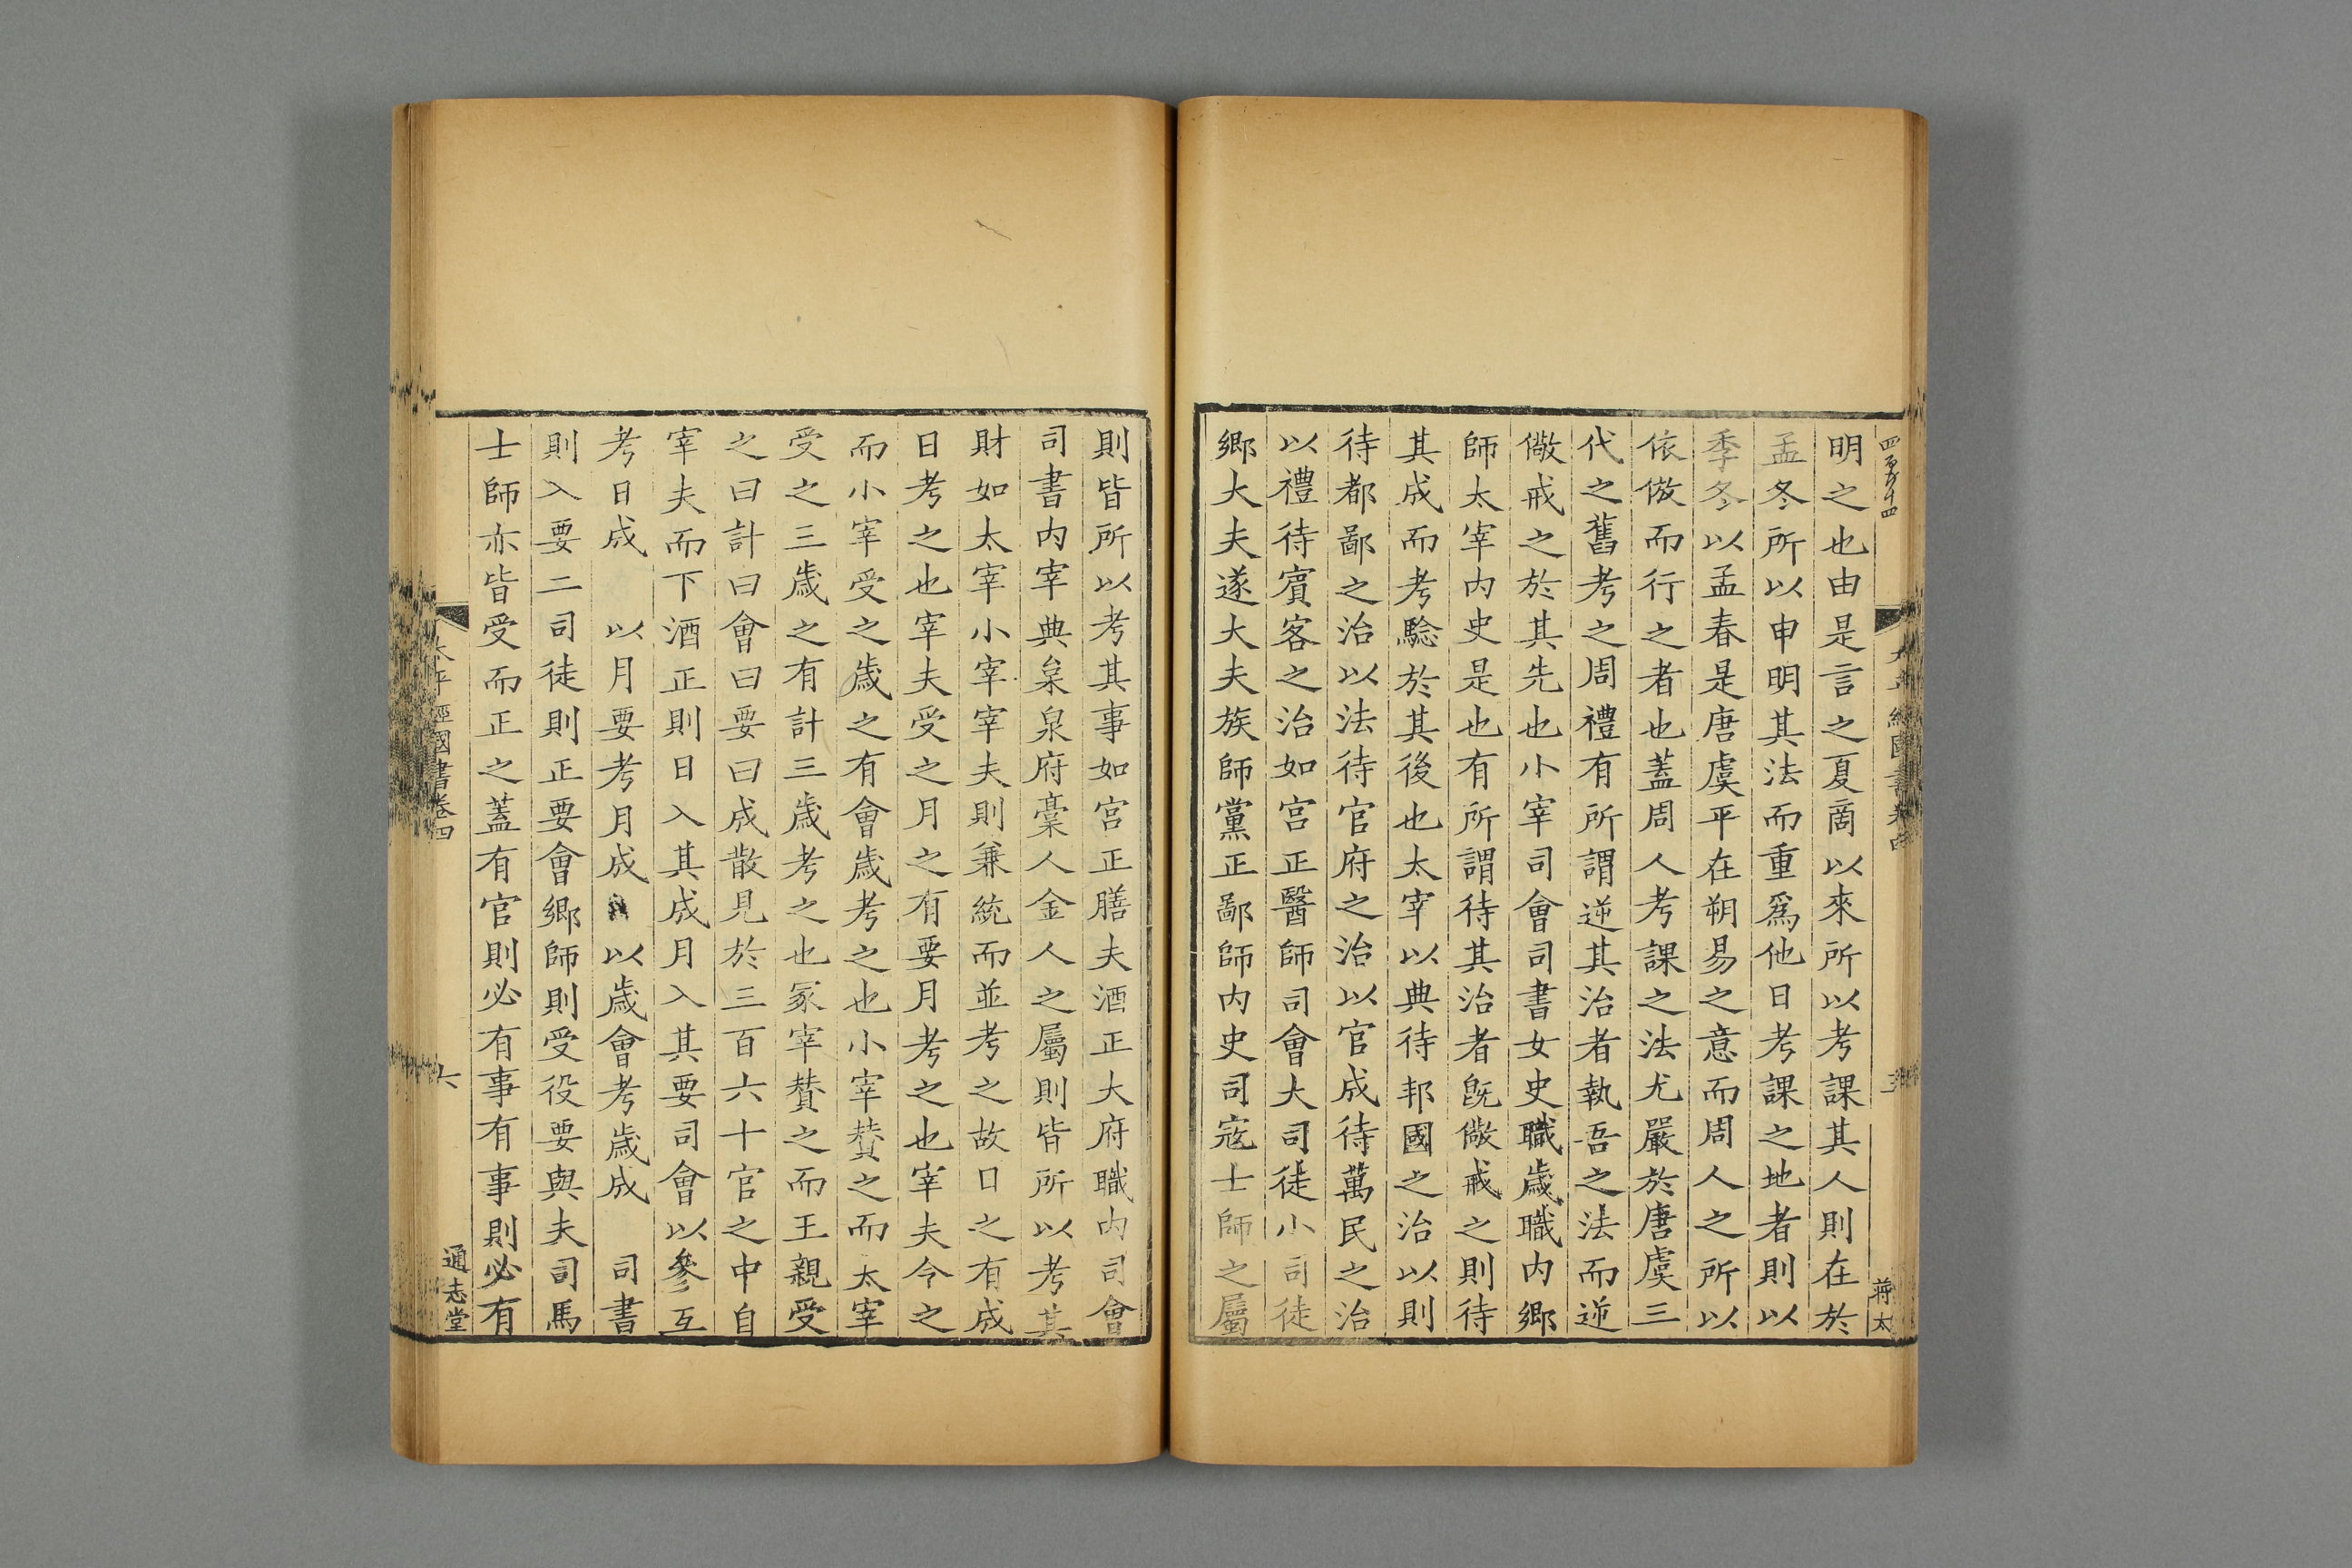 明之也由是言之夏商以來所以考課其人則在於
孟冬所以申明其法而重爲他日考課之地者則以
季冬以孟春是唐虞平在朔易之意而周人之所以
依倣而行之者也蓋周人考課之法尤嚴於唐虞三
代之舊考之周禮有所謂逆其治者執吾之法而逆
儆戒之於其先也小宰司會司書女史職歲職内鄉
師太宰内史是也有所謂待其治者旣儆戒之則待
其成而考驗於其後也太宰以典待邦國之治以則
待都鄙之治以法待官府之治以官成待萬民之治
以禮待賓客之治如宮正醫師司會大司徒小司徒
鄉大夫遂大夫族師黨正鄙師内史司寇士師之屬
則皆所以考其事如宮正膳夫酒正大府職内司會
司書内宰典枲泉府槀人金人之屬則皆所以考其
財如太宰小宰宰夫則兼統而並考之故日之有成
日考之也宰夫受之月之有要月考之也宰夫令之
而小宰受之歲之有會歲考之也小宰贊之而太宰
受之三歲之有計三歲考之也冢宰贊之而王親受
之曰計曰會曰要曰成散見於三百六十官之中自
宰夫而下酒正則日入其成月入其要司會以參互
考日成 以月要考月成 以歲會考歲成 司書
則入要二司徒則正要會鄉師則受役要與夫司馬
士師亦皆受而正之蓋有官則必有事有事則必有
平經國書卷四
六
通志堂
蔣太